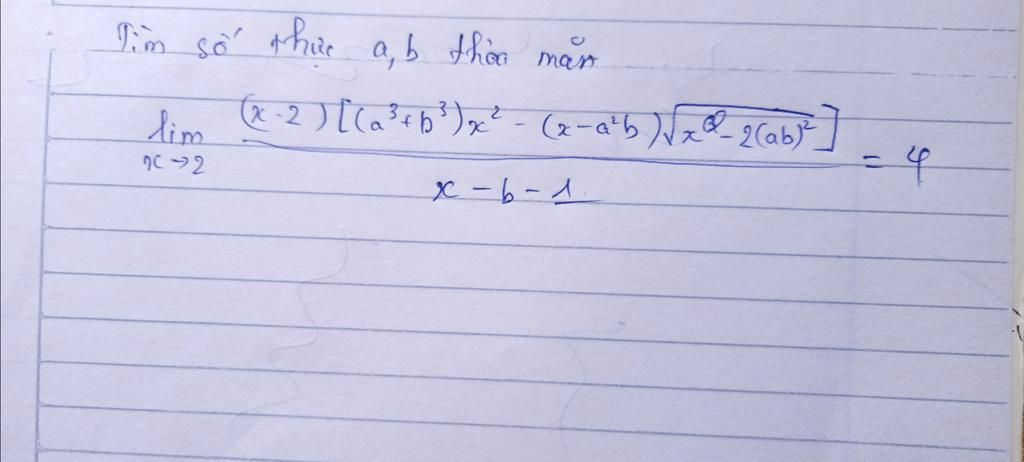 Tìm số thực a, b thỏa mãn
lim x→2 (x-2)[(a³+b³)x² - (x-a²b)√(x² - 2(ab)²)] / (x - b - 1) = 4